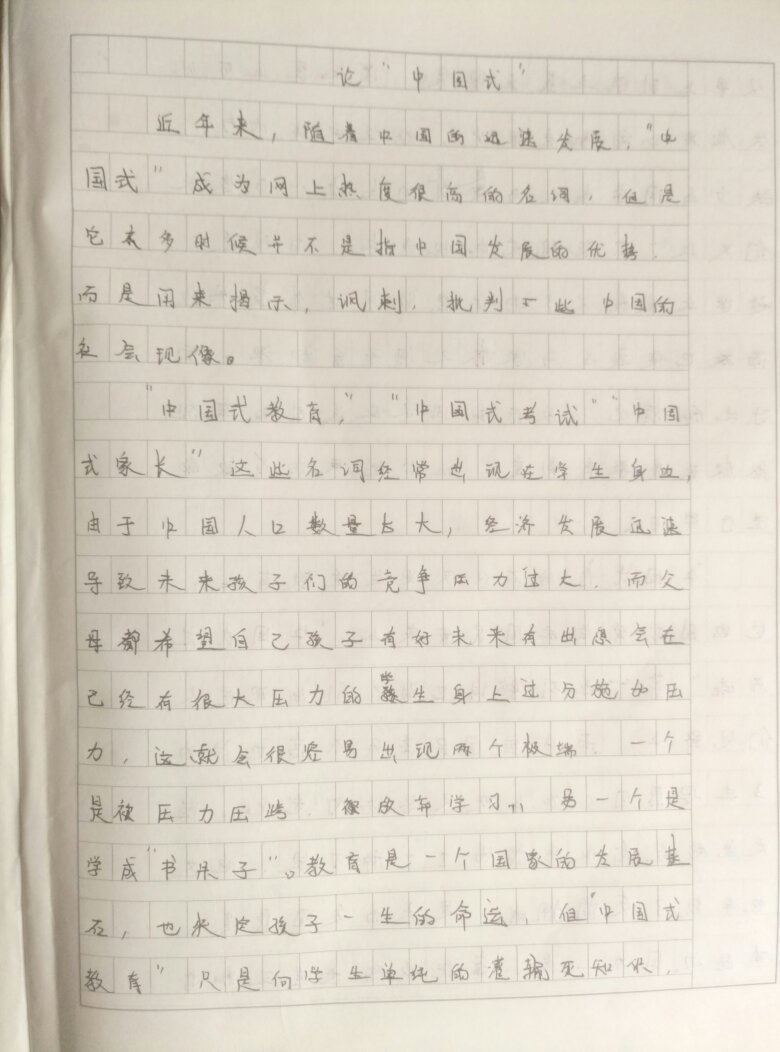 论“中国式”
近年来，随着中国的迅速发展，“中
国式”成为网上热度很高的名词，但是
它大多时候并不是指中国发展的优势，
而是用来揭示，讽刺，批判一些中国的
社会现像。
“中国式教育，”“中国式考试”“中国
式家长”这些名词经常出现在学生身边，
由于中国人口数量太大，经济发展迅速
导致未来孩子们的竞争压力过大，而父
母都希望自己孩子有好未来有出息会在
已经有很大压力的学生身上过分施加压
力，这就会很容易出现两个极端，一个
是被压力压垮，放弃学习，另一个是
学成“书呆子”。教育是一个国家的发展基
石，也决定孩子一生的命运，但“中国式
教育”只是向学生单纯的灌输死知识，